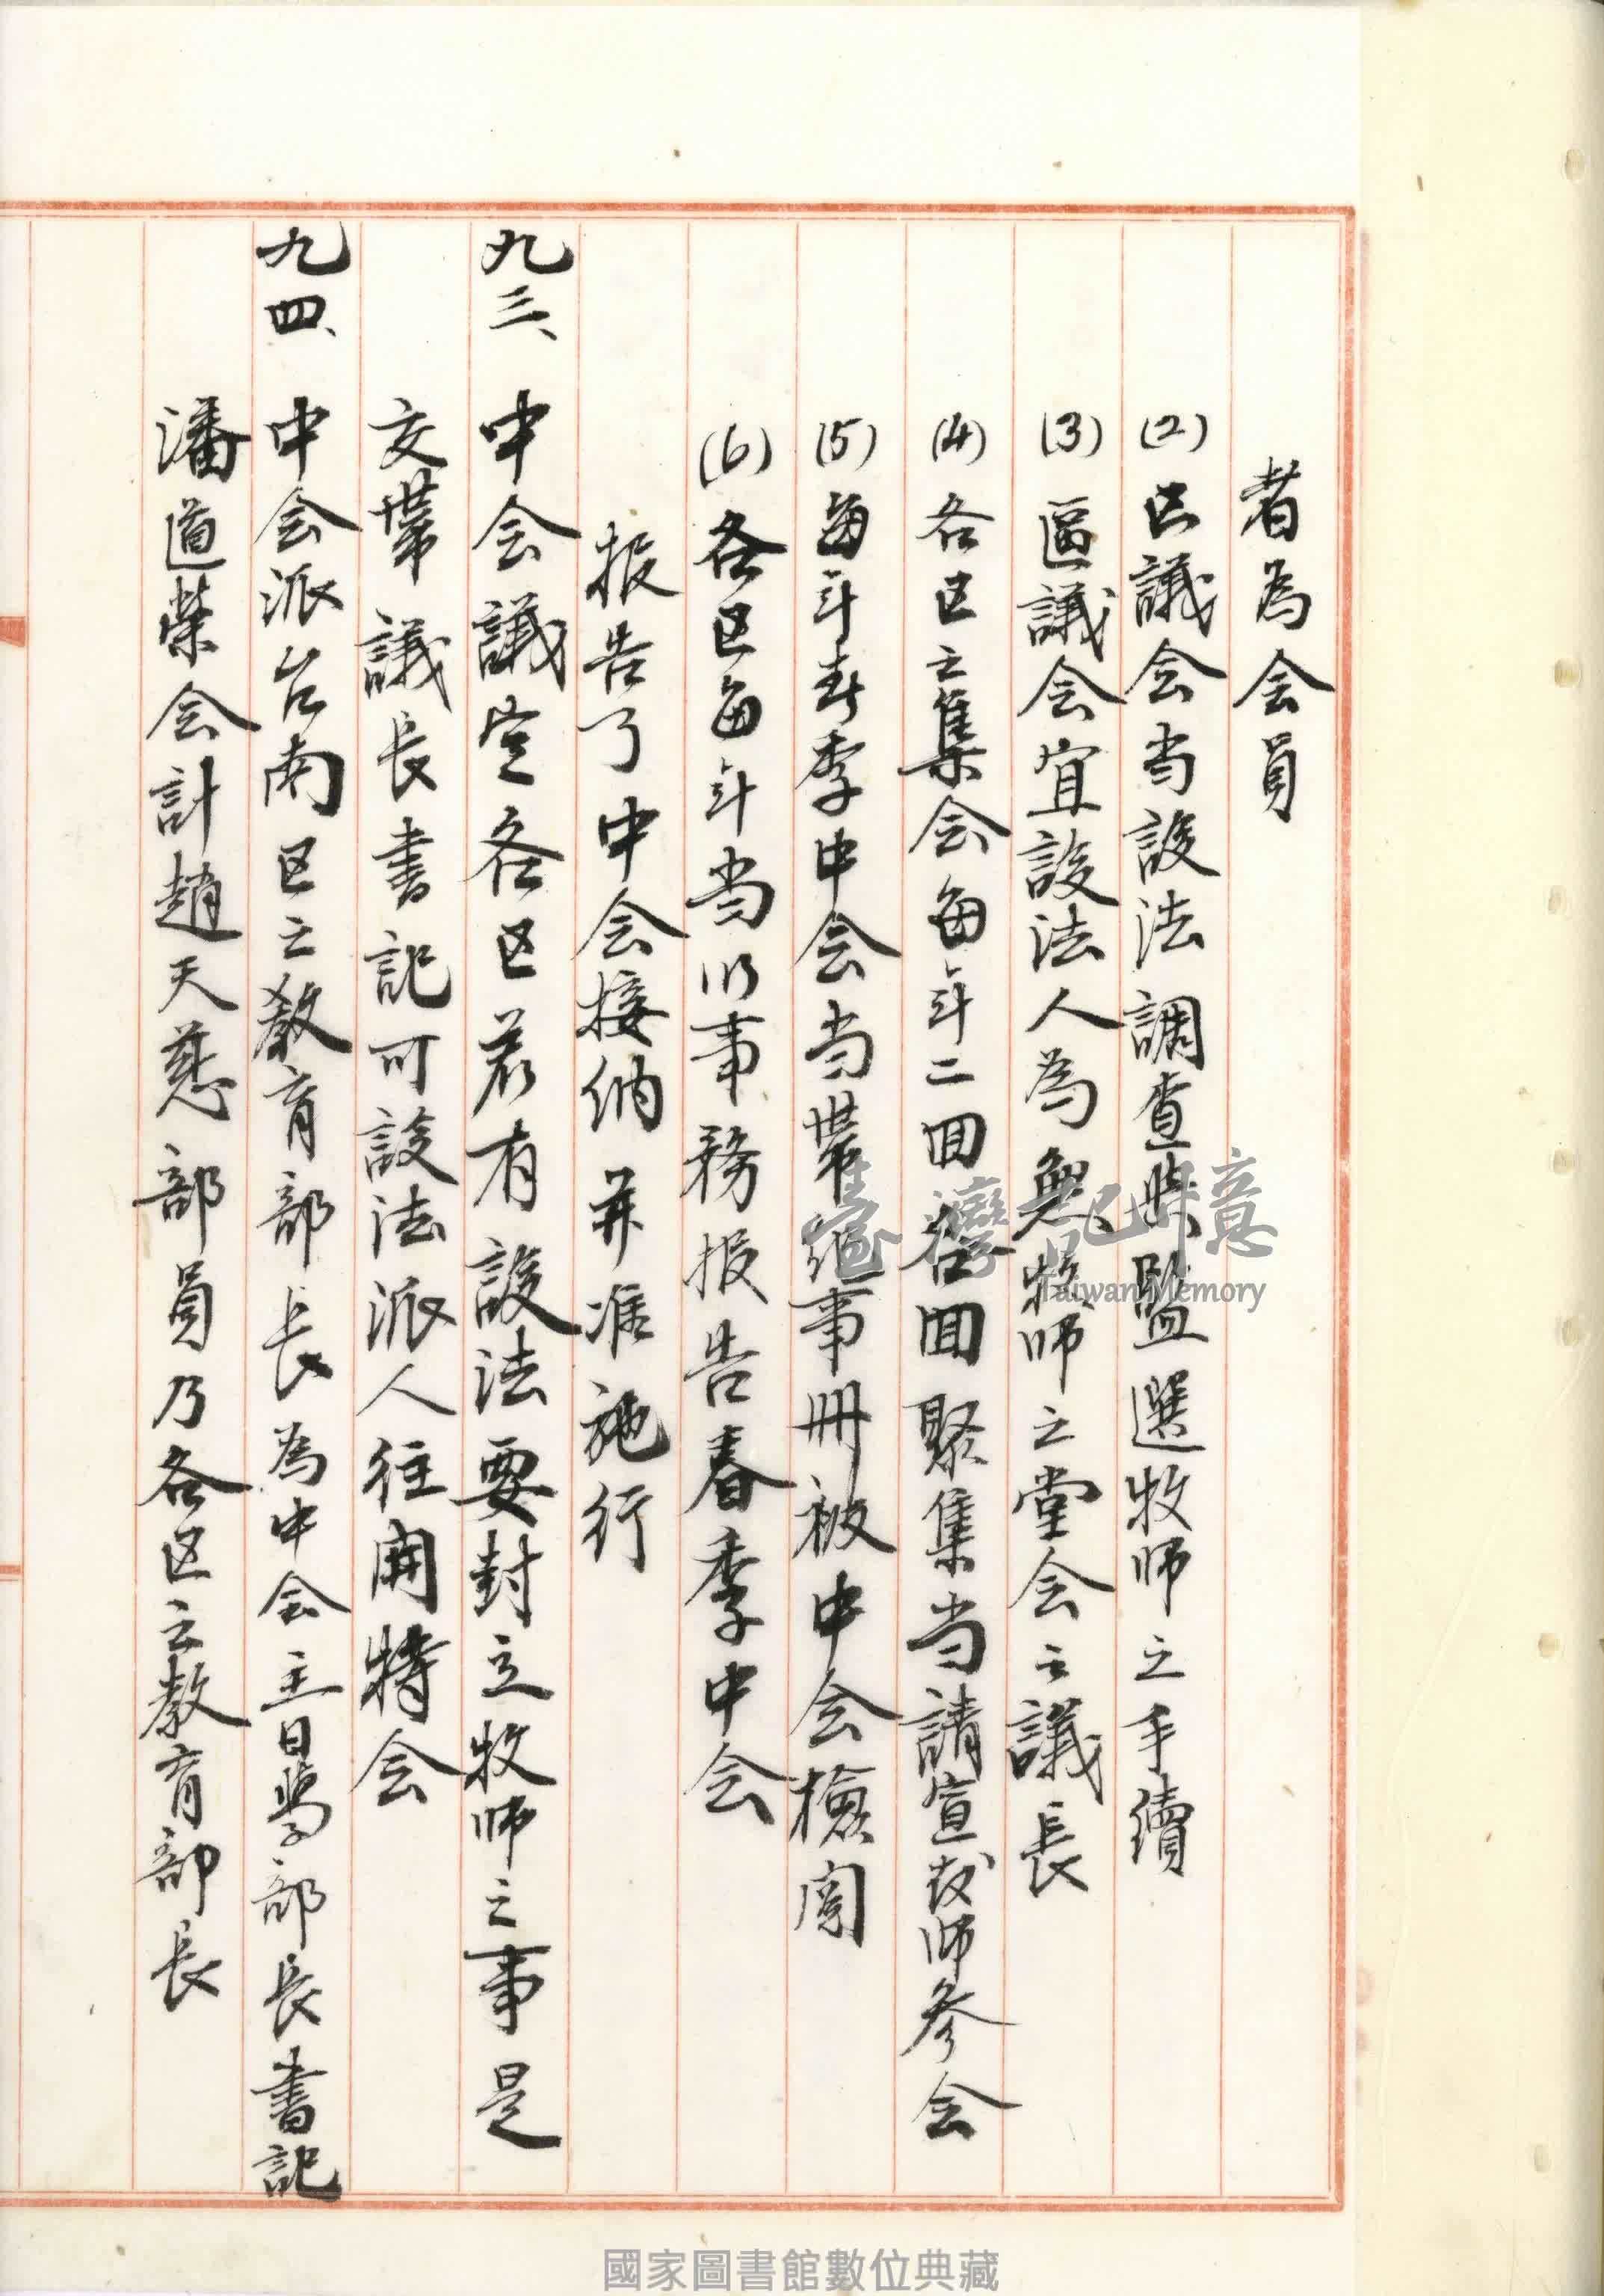 者為会員
(2) 区議会当設法調查與監選牧師之手續
(3) 區議会宜設法人為無牧師之堂会之議長
(4) 各区之集会每年二回各回聚集当請宣教師参会
(5) 每年春季中会当帶記事冊被中会檢閱
(6) 各区每年当以事務报告春季中会
报告了中会接纳并准施行
九三、中会議定各区若有設法要封立牧師之事是
交帶議長書記可設法派人往開特会
九四、中会派台南区之教育部長為中会主日學部長書記
潘道榮会計趙天慈部員乃各区之教育部長
臺灣記憶
Taiwan Memory
國家圖書館數位典藏